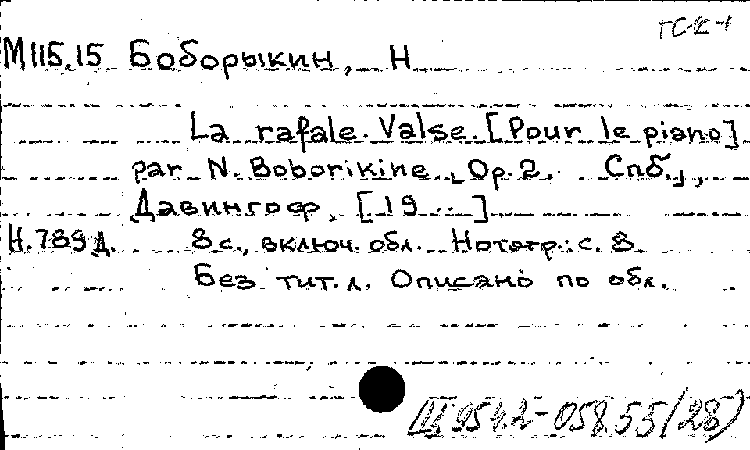 ГС-К-1
М115.15 Боборыкин, Н
La rafale. Valse. [Pour le piano]
par N. Boborikine, Op. 2. Спб.,
Давингоф, [19...]
Н.789 Д. 8 с., включ. обл. Нотогр.: с. 8.
Без тит. л. Описано по обл.
Ш 954.2-058.55/28)